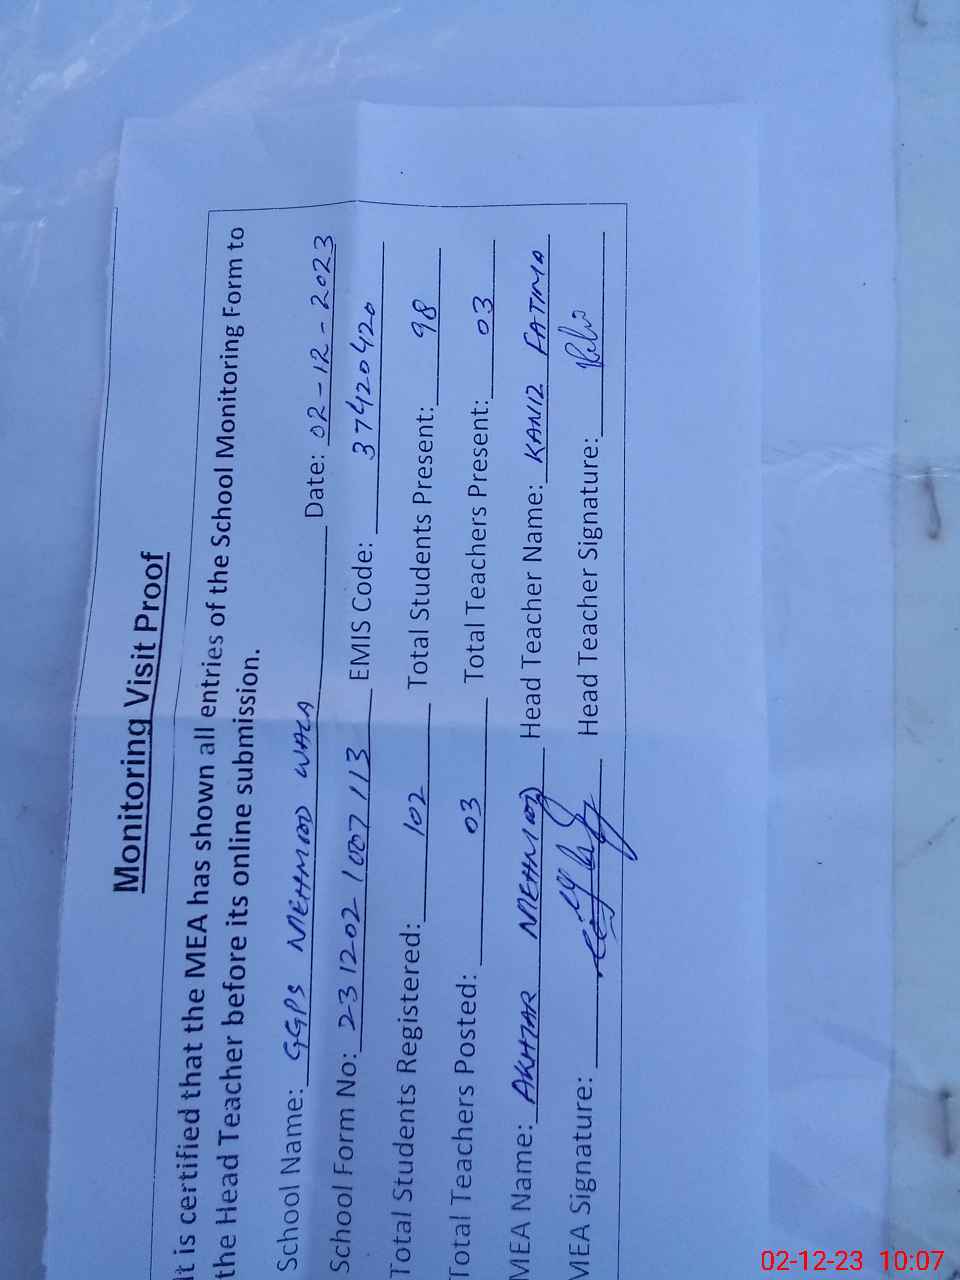 Monitoring Visit Proof
It is certified that the MEA has shown all entries of the School Monitoring Form to
the Head Teacher before its online submission.
School Name: GGPS MEHMOOD WALA Date: 02-12-2023
School Form No: 231202 1007113 EMIS Code: 37420420
Total Students Registered: 102 Total Students Present: 98
Total Teachers Posted: 03 Total Teachers Present: 03
MEA Name: AKHTAR MEHMOOD Head Teacher Name: KANIZ FATIMA
MEA Signature: Head Teacher Signature:
02-12-23 10:07